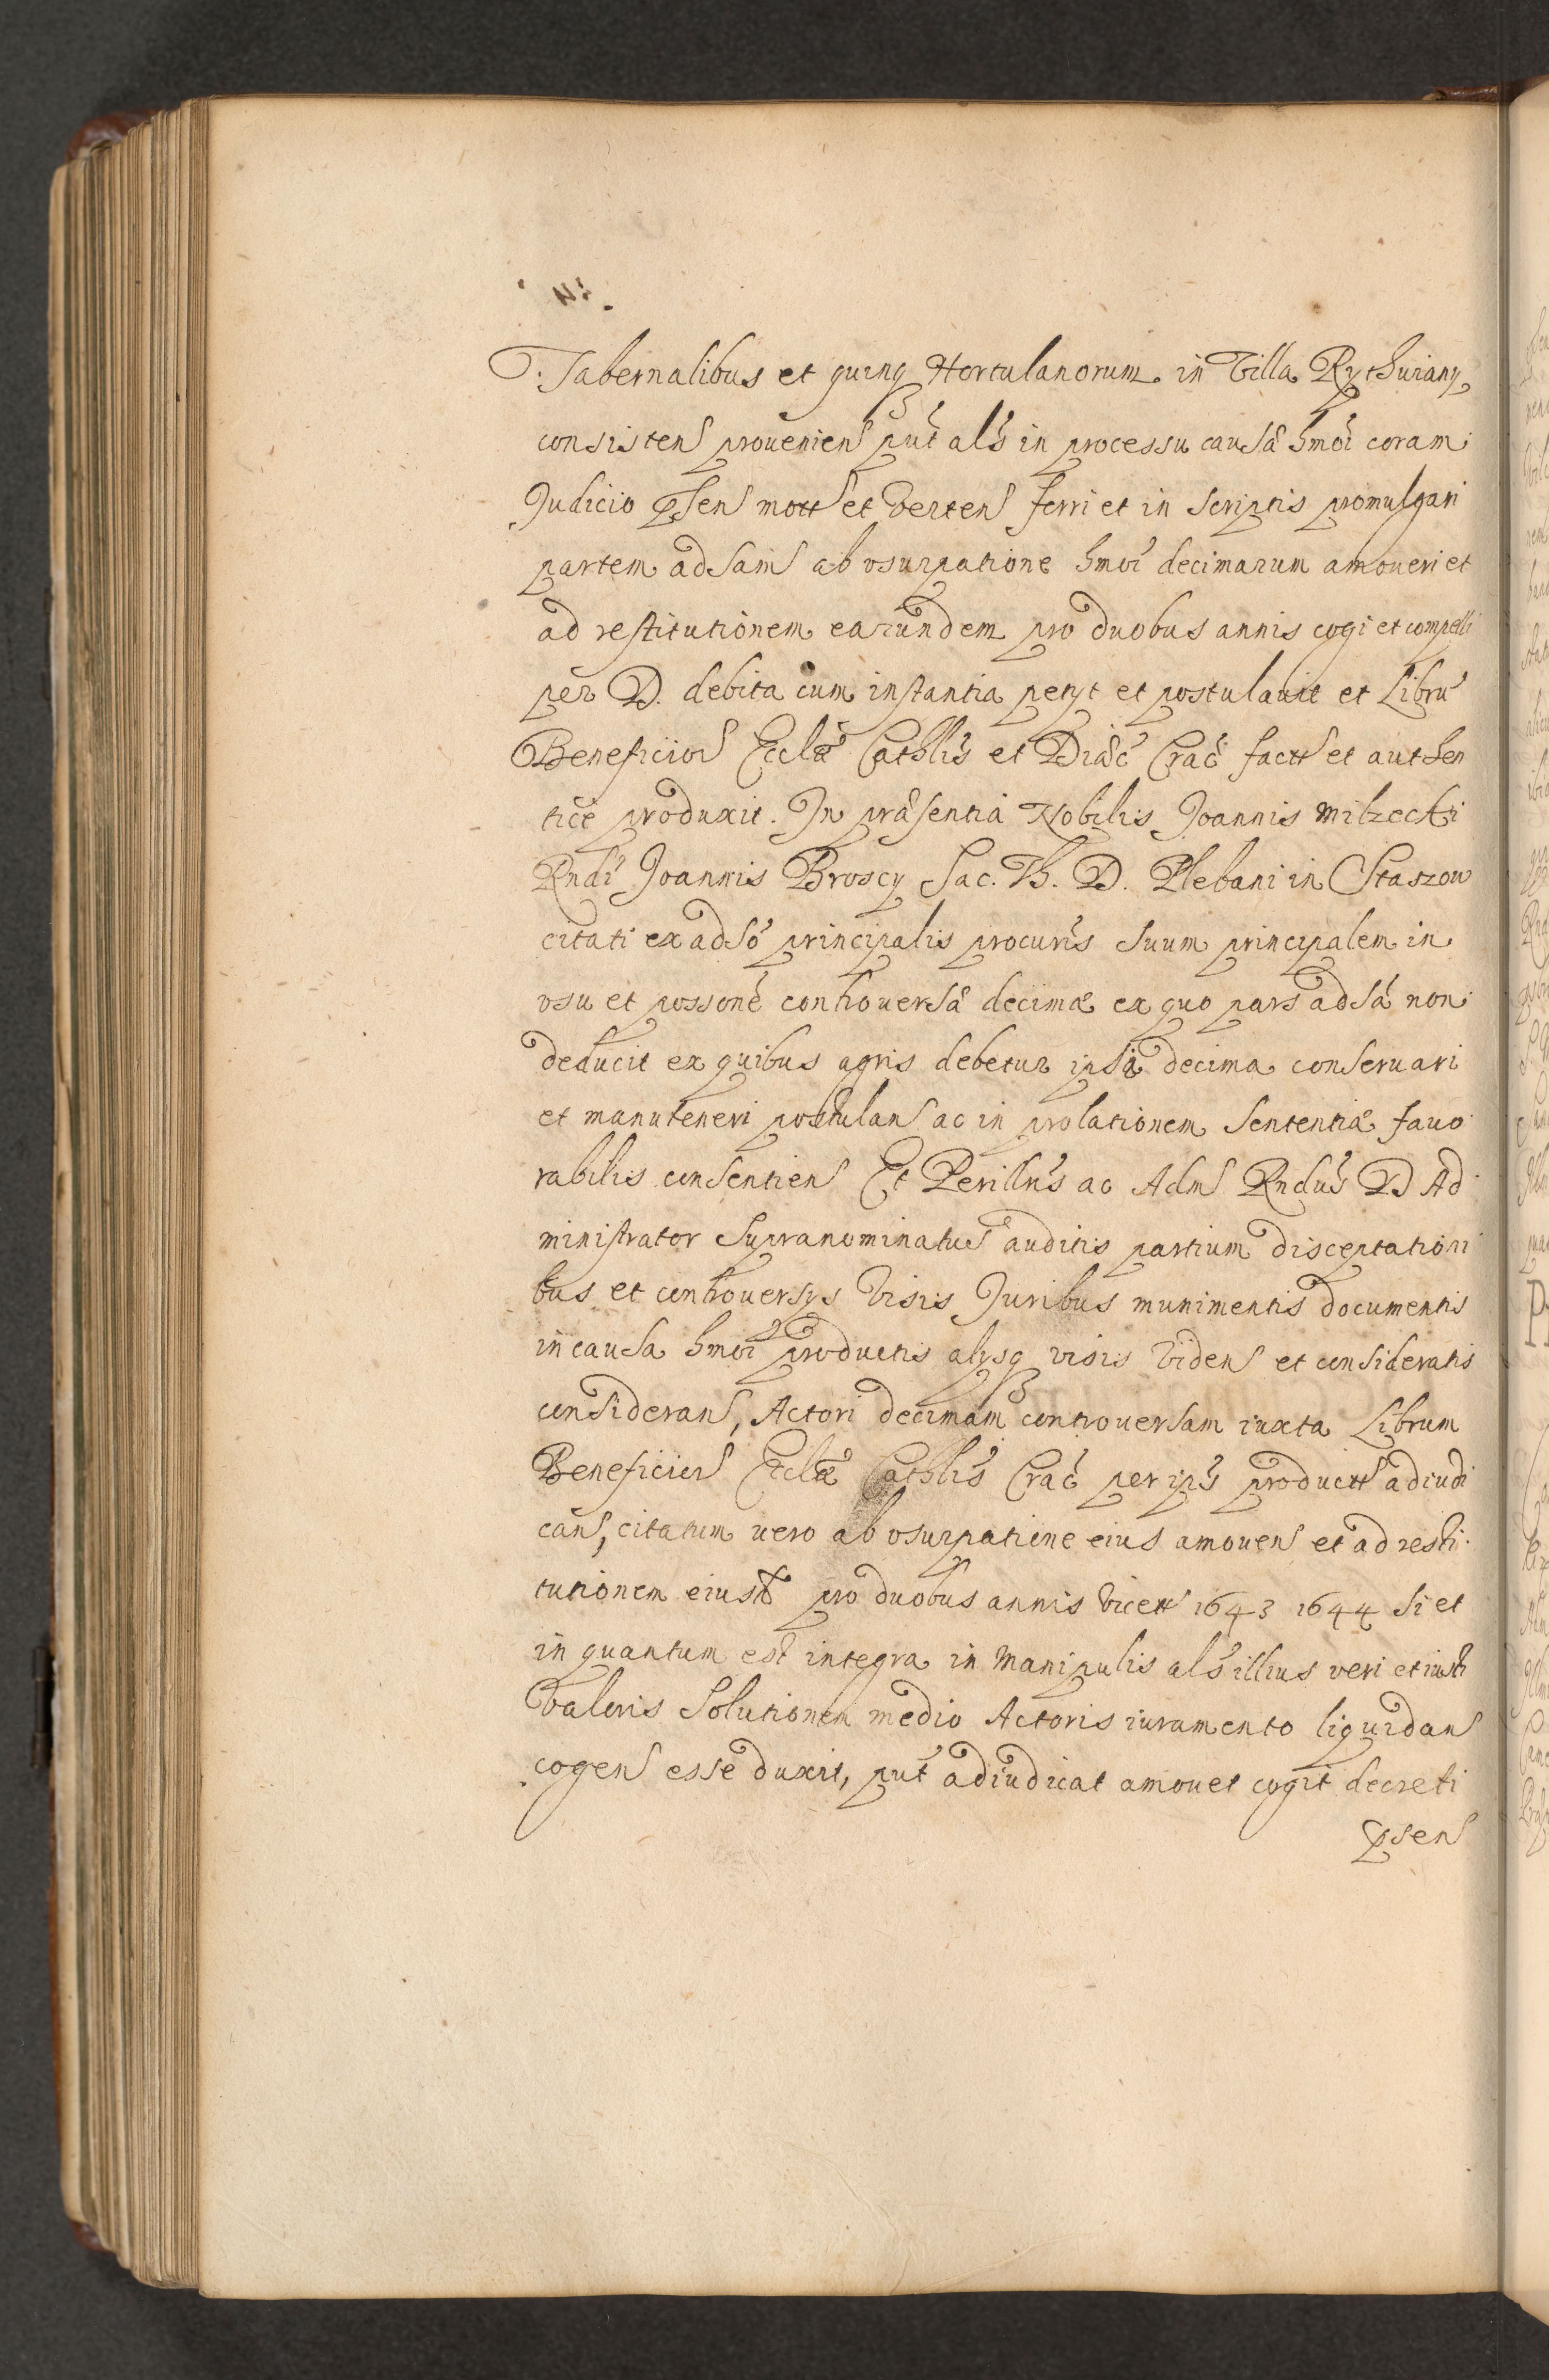 Tabernalibus et quinq Hortulanorum in Villa Rythwiany
consisten prouenien put als in processu causæ hmoi coram
Judicio Psen mott et verten ferri et in Scriptis promulgari
partem adsam ab vsurpatione hmoi decimarum amoueri et
ad restitutionem earundem pro duobus annis cogi et compelli
per D. debita cum instantia petyt et postulauit et Libru
Beneficior Ecclæ Cathlis et Diæc Crac factt et authen
tice produxit. In præsentia Nobilis Joannis Milzecki
Rndi Joannis Broscy Sac. Th. D. Plebani in Staszow
citati ex adso principalis procuris Suum principalem in
vsu et possone controuersæ decimæ ex quo pars adsa non
deducit ex quibus agris debetur ipsa decima conseruari
et manuteneri postulans ac in prolationem Sententiæ fauo
rabilis consentien Et Perillris ac Adm Rndus D Ad
ministrator Supranominatus auditis partium disceptationi
bus et controuersys visis Juribus munimentis documentis
in causa hmoi productis alysq visis viden et consideratis
consideran, Actori decimam controuersam iuxta Librum
Beneficior Ecclæ Cathlis Crac per ips productt adiudi
can, citatum vero ab vsurpatione eius amouen et ad resti
tutionem eiusd pro duobus annis vicett 1643 1644 Si et
in quantum est integra in Manipulis als illius veri et iusti
valoris Solutionem medio Actoris iuramento liquidan
cogen esse duxit, put adiudicat amouet cogit decreti
psen